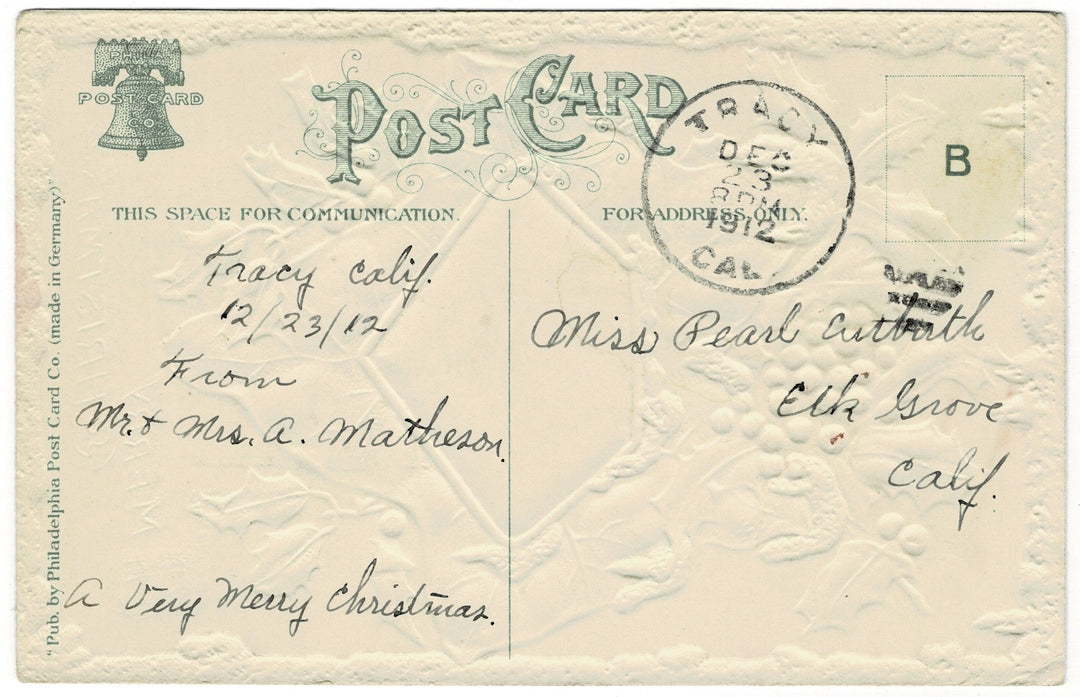 PHILA
POST CARD
CO
POST CARD
TRACY
DEC
23
8 PM
1912
CAL
B
THIS SPACE FOR COMMUNICATION.
FOR ADDRESS ONLY.
Tracy Calif.
12/23/12
From
Mr. & Mrs. A. Matheson.
A Very Merry Christmas.
Miss Pearl Cutbirth
Elk Grove
Calif.
"Pub. by Philadelphia Post Card Co. (made in Germany)"